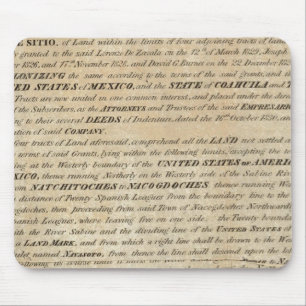 E SITIO, of Land within the limits of four adjoining tracts of land
granted to the said Lorenzo De Zavala on the 12th of March 1829, Joseph
1826, and 17th November 1828, and David G Burnet on the 22 December 1826
LONIZING the same according to the terms of the said grants, and the
ED STATES of MEXICO, and the STATE of COAHUILA and
Tracts are now united in one common interest, and placed under the
Subscribers, as the ATTORNEYS and Trustees of the said EMPRESAR
to their several DEEDS of Indenture, dated the 16th October 1830, an
ation of said COMPANY.
our tracts of Land aforesaid, comprehend all the LAND not settled
terms of said Grants, lying within the following limits, excepting the
ng at the Westerly boundary of the UNITED STATES of AMERI
XICO, thence running Northerly on the Westerly side of the Sabine River
from NATCHITOCHES to NACOGDOCHES, thence running Wes
distance of Twenty Spanish Leagues from the boundary line to the
gdoches, then proceeding from said Town of Nacogdoches Northward
Spanish Leagues, where leaving free on one side, the Twenty bounda
ith the River Sabine and the dividing line of the UNITED STATES
a LAND MARK, and from which a right line shall be drawn to the Wes
ulet named NAVASOTO, from thence the line shall descend upon the left
following its